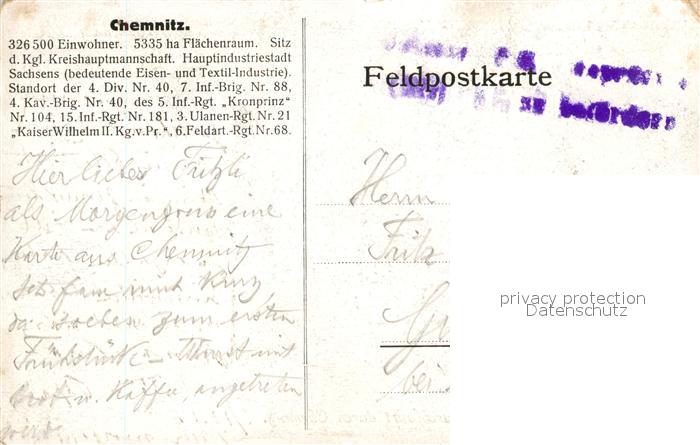 Chemnitz.
326 500 Einwohner. 5335 ha Flächenraum. Sitz
d. Kgl. Kreishauptmannschaft. Hauptindustriestadt
Sachsens (bedeutende Eisen- und Textil-Industrie).
Standort der 4. Div. Nr. 40, 7. Inf.-Brig. Nr. 88,
4. Kav.-Brig. Nr. 40, des 5. Inf.-Rgt. „Kronprinz"
Nr. 104, 15. Inf.-Rgt. Nr. 181, 3. Ulanen-Rgt. Nr. 21
„Kaiser Wilhelm II. Kg. v. Pr.", 6. Feldart.-Rgt. Nr. 68.
Hier liebes Fritzli
als Morgengruss eine
Karte aus Chemnitz
kurz,
da soeben zum ersten
Frühstück - mit
Brot u. Kaffee, angetreten
wird.
Feldpostkarte
zu befördern
Herrn
Fritz
bei
privacy protection
Datenschutz